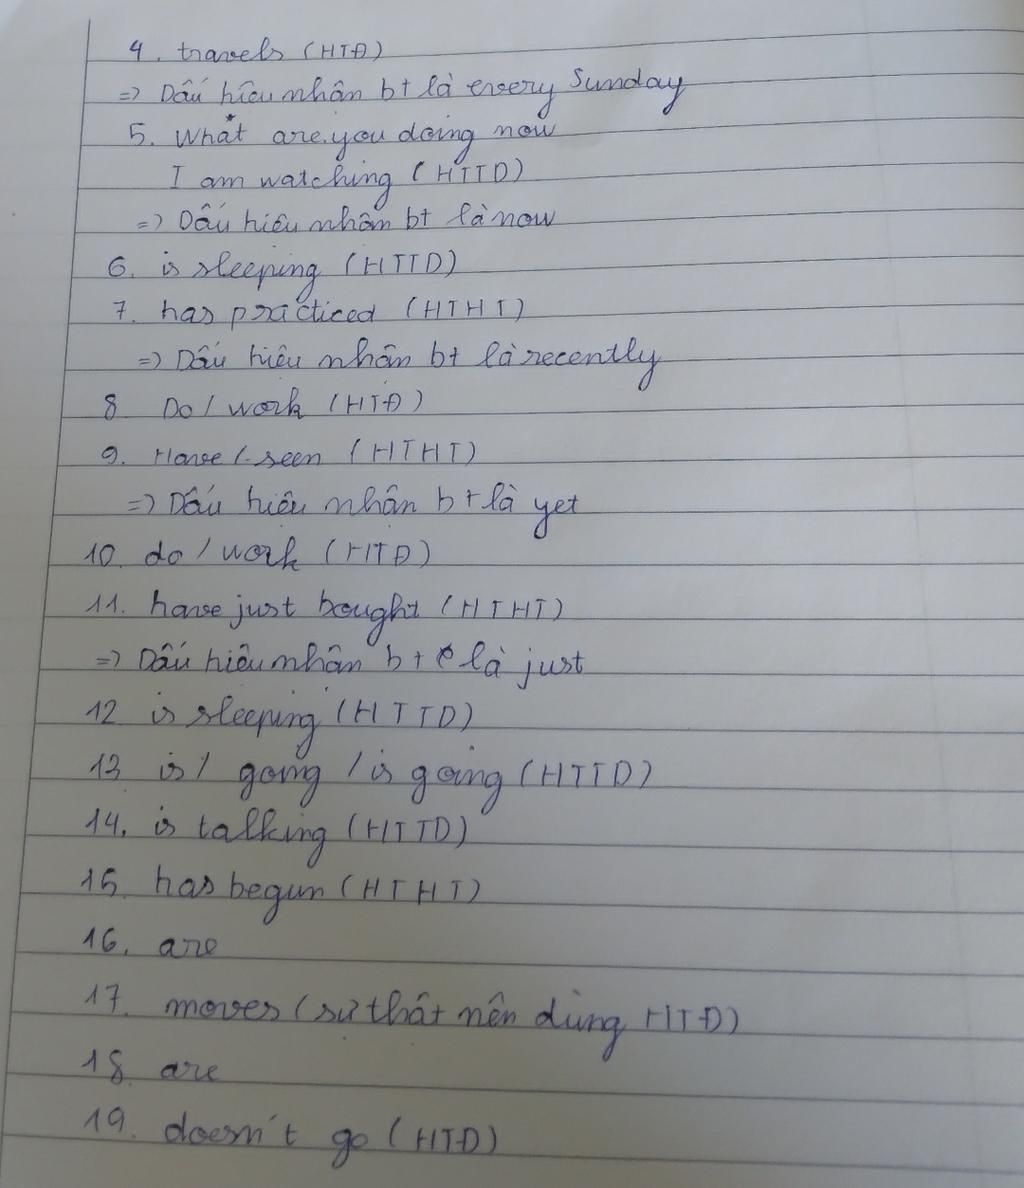 4. travels (HTĐ)
=> Dấu hiệu nhận bt là every Sunday
5. What are you doing now
I am watching (HTTD)
=> Dấu hiệu nhận bt là now
6. is sleeping (HTTD)
7. has practiced (HTHT)
=> Dấu hiệu nhận bt là recently
8. Do / work (HTĐ)
9. Have / seen (HTHT)
=> Dấu hiệu nhận bt là yet
10. do / work (HTĐ)
11. have just bought (HTHT)
=> Dấu hiệu nhận bt là just
12 is sleeping (HTTD)
13 is / gong / is going (HTTD)
14. is talking (HTTD)
15 has begun (HTHT)
16. are
17. moves (sự thật nên dùng HTĐ)
18. are
19. doesn't go (HTĐ)